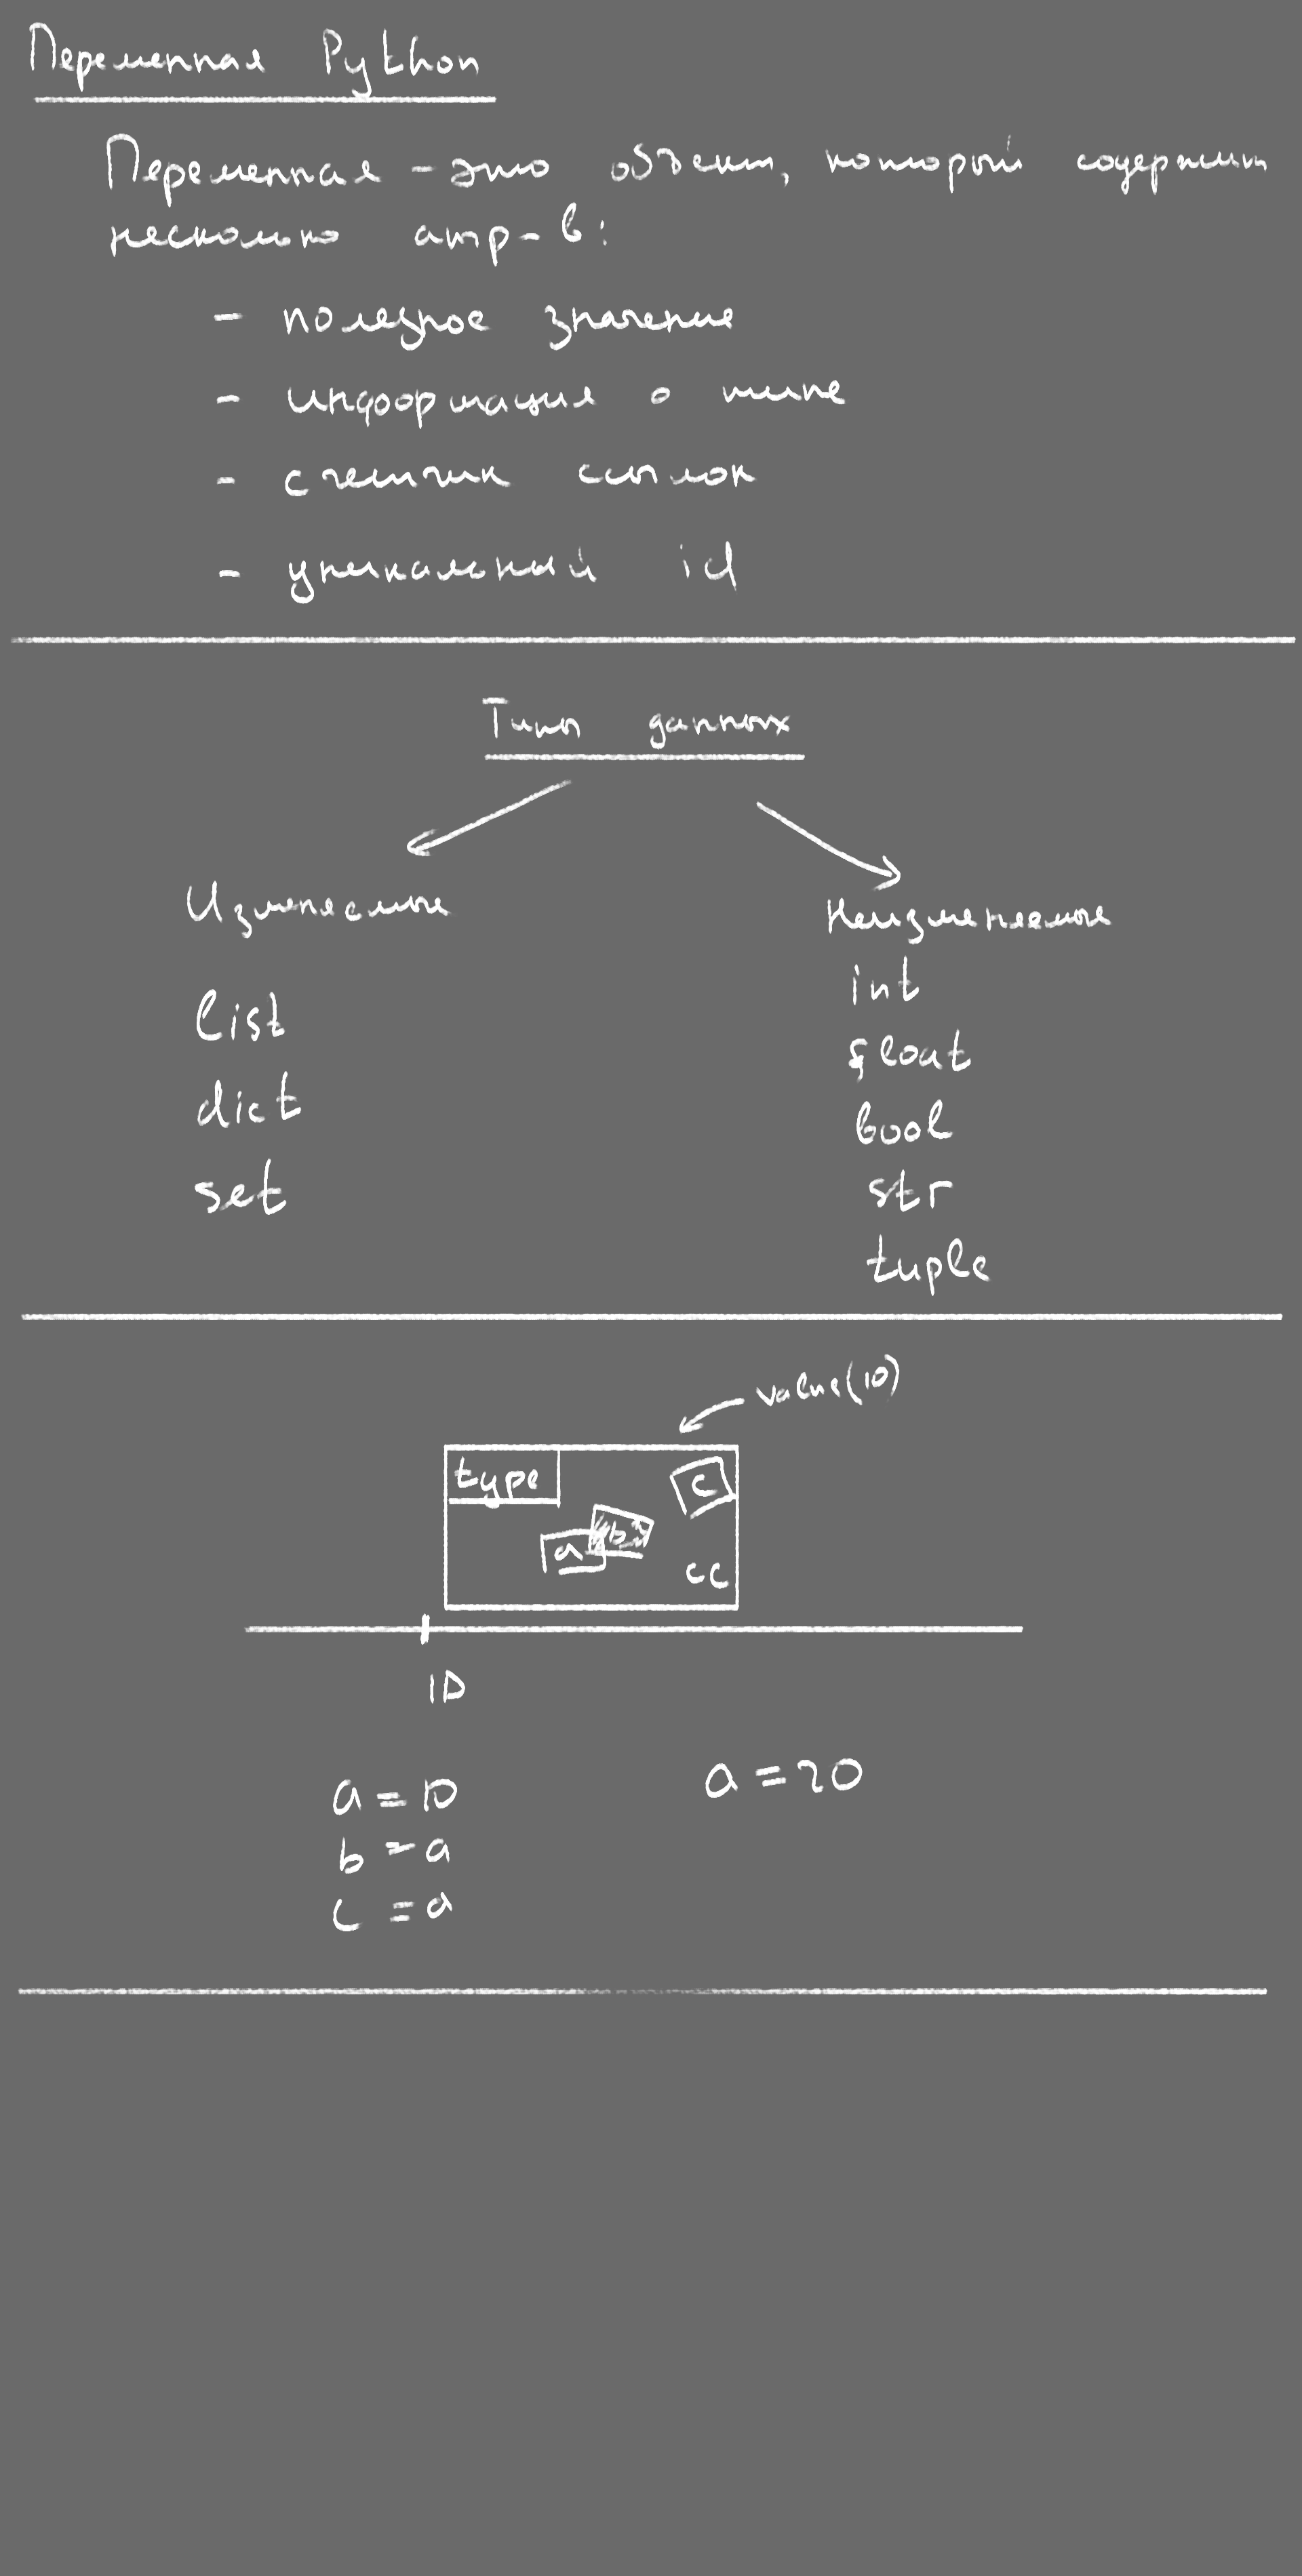 Переменная Python
Переменная - это объект, который содержит
несколько атр-в:
- полезное значение
- информация о типе
- счетчик ссылок
- уникальный id
Типы данных
Изменяемые
list
dict
set
Неизменяемые
int
float
bool
str
tuple
value(10)
type
c
b
a
cc
ID
a = 10
b = a
c = a
a = 20